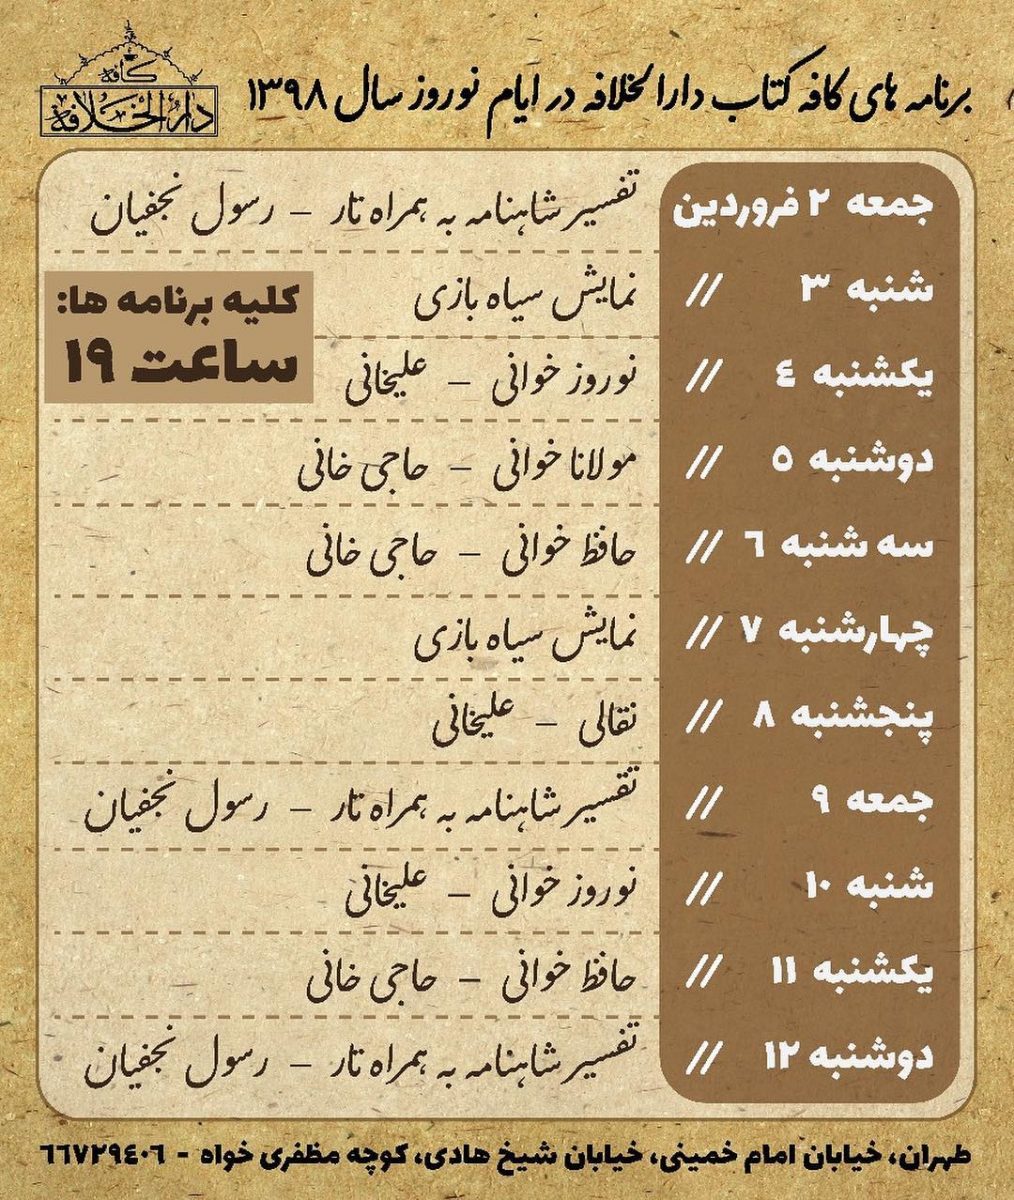 کافه
دارالخلافة
برنامه های کافه کتاب دارالخلافه در ایام نوروز سال ۱۳۹۸
جمعه ۲ فروردین تفسیر شاهنامه به همراه تار – رسول نجفیان
شنبه ۳ // نمایش سیاه بازی
کلیه برنامه ها:
ساعت ۱۹
یکشنبه ٤ // نوروز خوانی – علیخانی
دوشنبه ٥ // مولانا خوانی – حاجی خانی
سه شنبه ٦ // حافظ خوانی – حاجی خانی
چهارشنبه ۷ // نمایش سیاه بازی
پنجشنبه ۸ // نقالی – علیخانی
جمعه ۹ // تفسیر شاهنامه به همراه تار – رسول نجفیان
شنبه ۱۰ // نوروز خوانی – علیخانی
یکشنبه ۱۱ // حافظ خوانی – حاجی خانی
دوشنبه ۱۲ // تفسیر شاهنامه به همراه تار – رسول نجفیان
طهران، خیابان امام خمینی، خیابان شیخ هادی، کوچه مظفری خواه - ٦٦٧٢٩٤٠٦